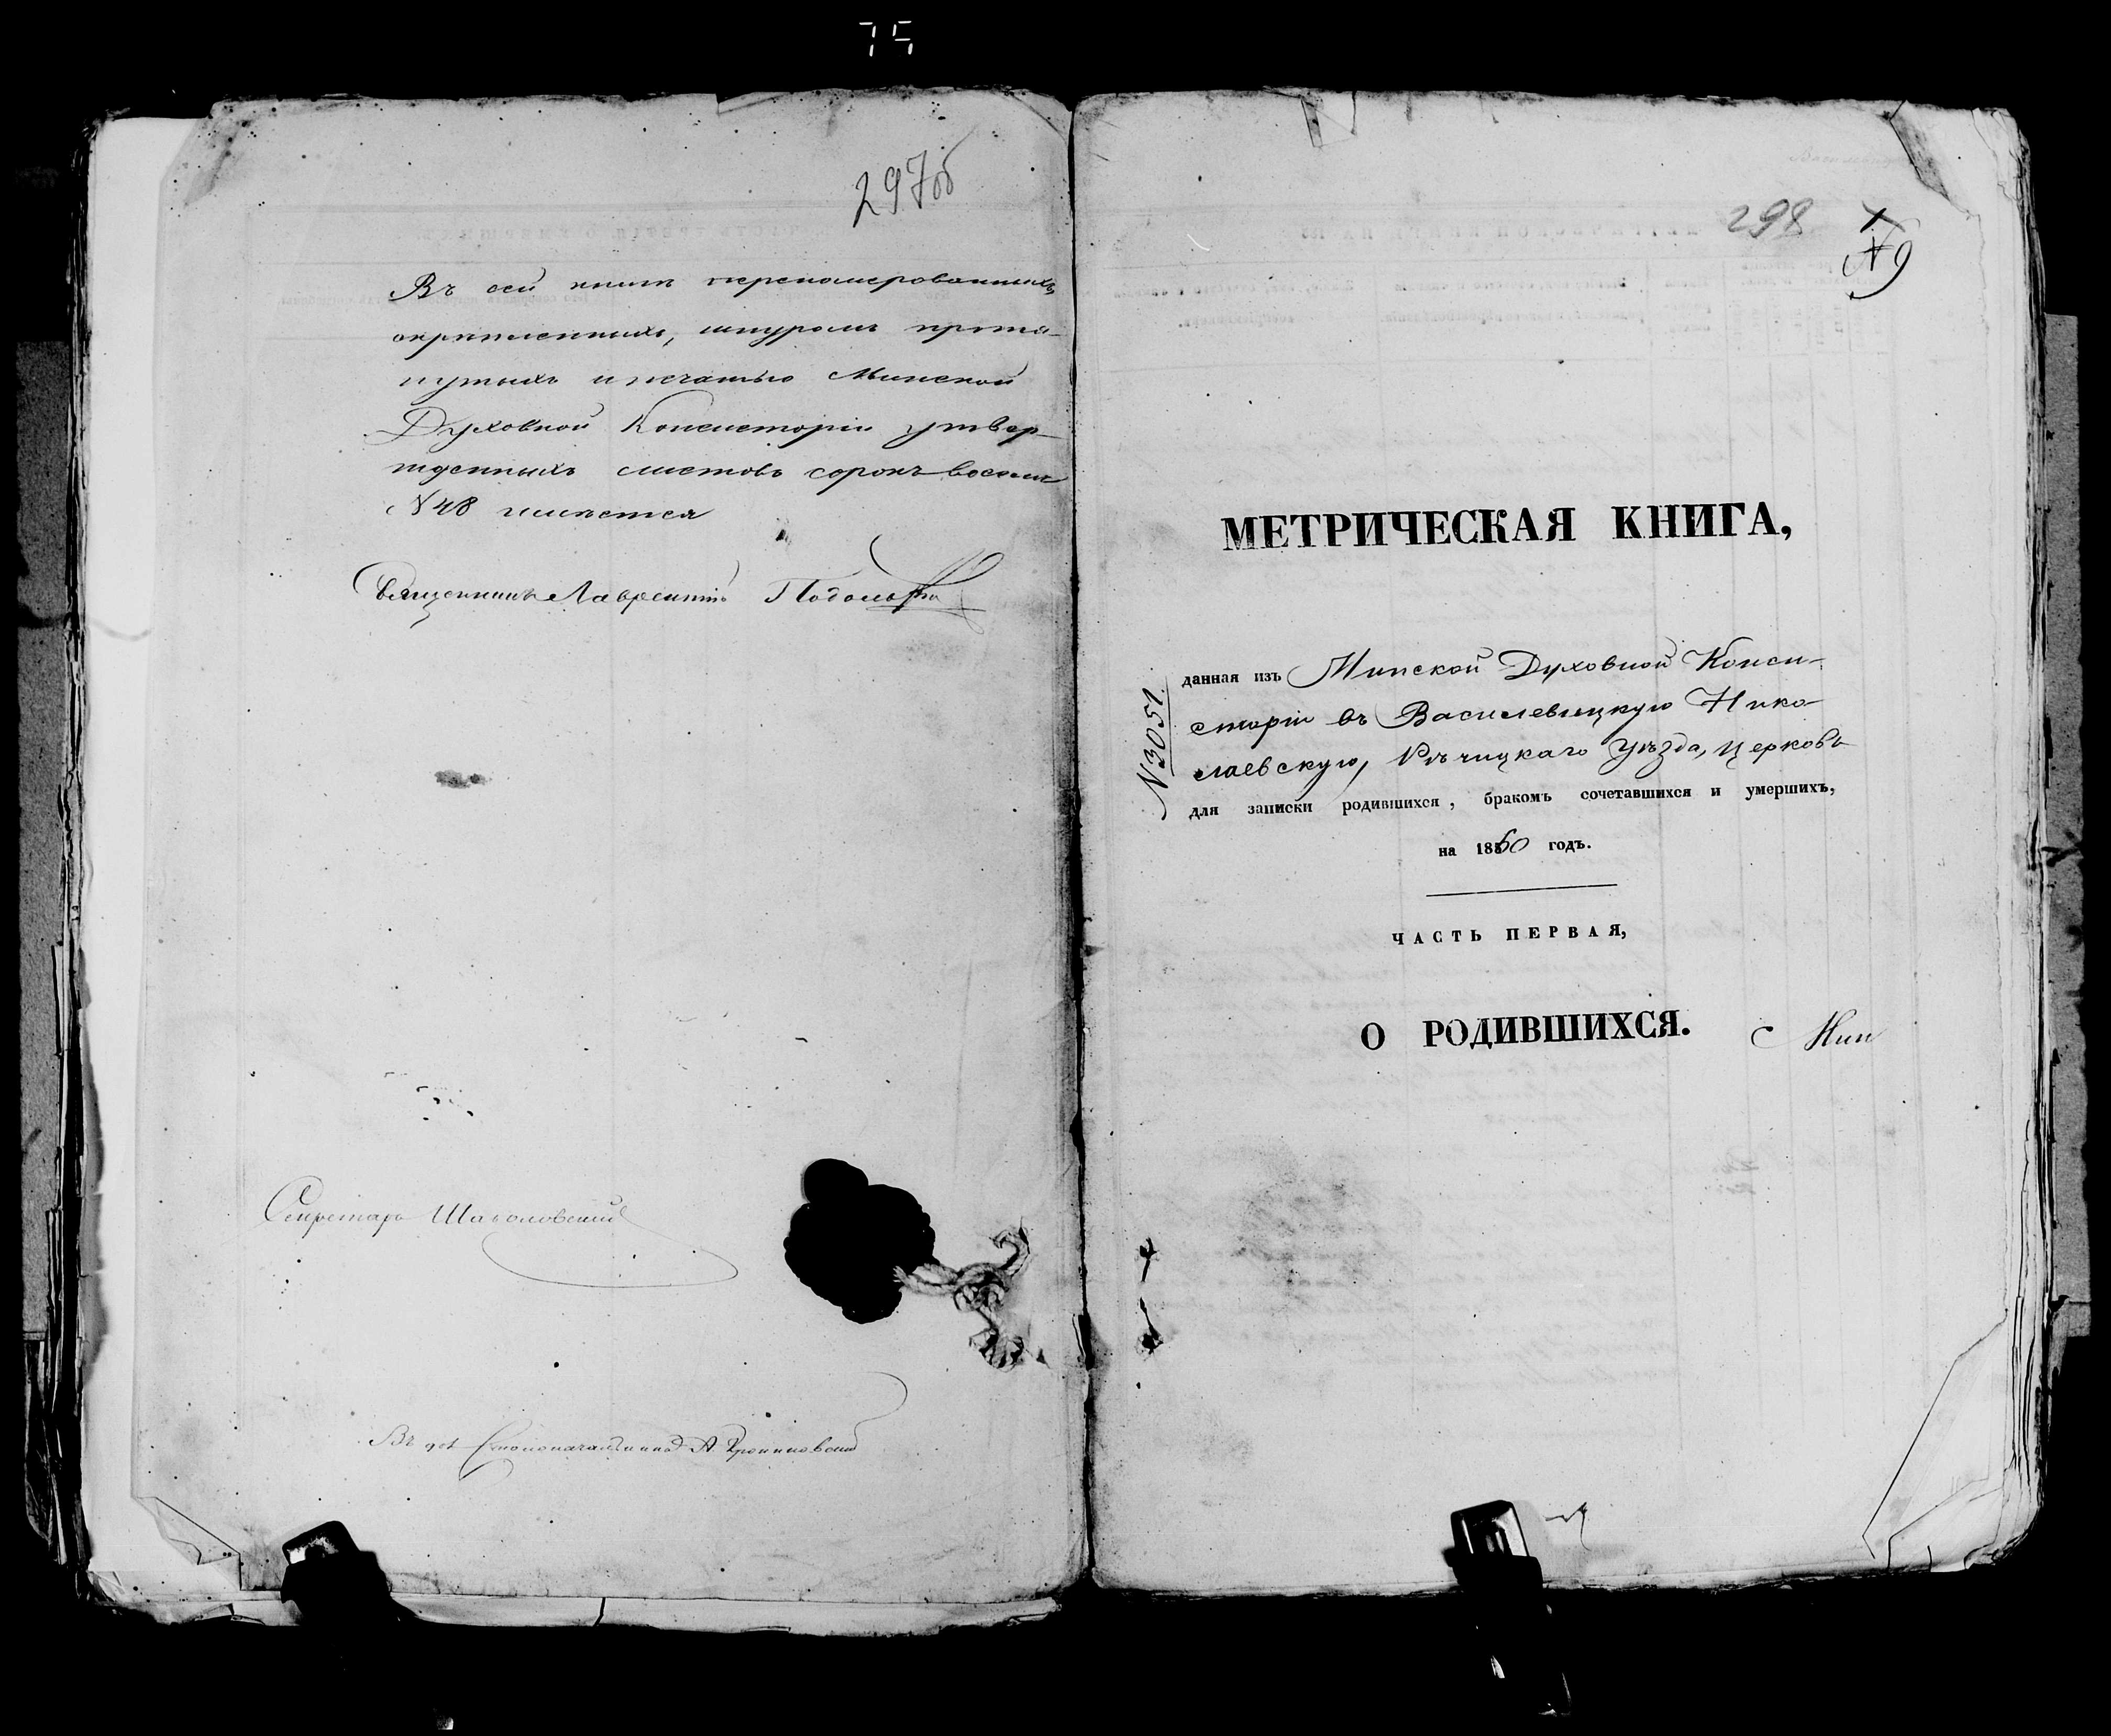 75
297об
Въ сей книгѣ перенумерованныхъ,
скрѣпленныхъ, шнуромъ протя-
нутыхъ и печатью Минской
Духовной Консисторіи утвер-
жденныхъ листовъ сорокъ восемь
№ 48 имѣется
Священникъ Лаврентій
Секретарь
Въ Столоначальника А.
298
1
№ 9
МЕТРИЧЕСКАЯ КНИГА,
№ 3051.
данная изъ Минской Духовной Конси-
сторіи въ Василевицкую Нико-
лаевскую, Рѣчицкаго уѣзда, церковь
для записки родившихся, бракомъ сочетавшихся и умершихъ,
на 1860 годъ.
ЧАСТЬ ПЕРВАЯ,
О РОДИВШИХСЯ.